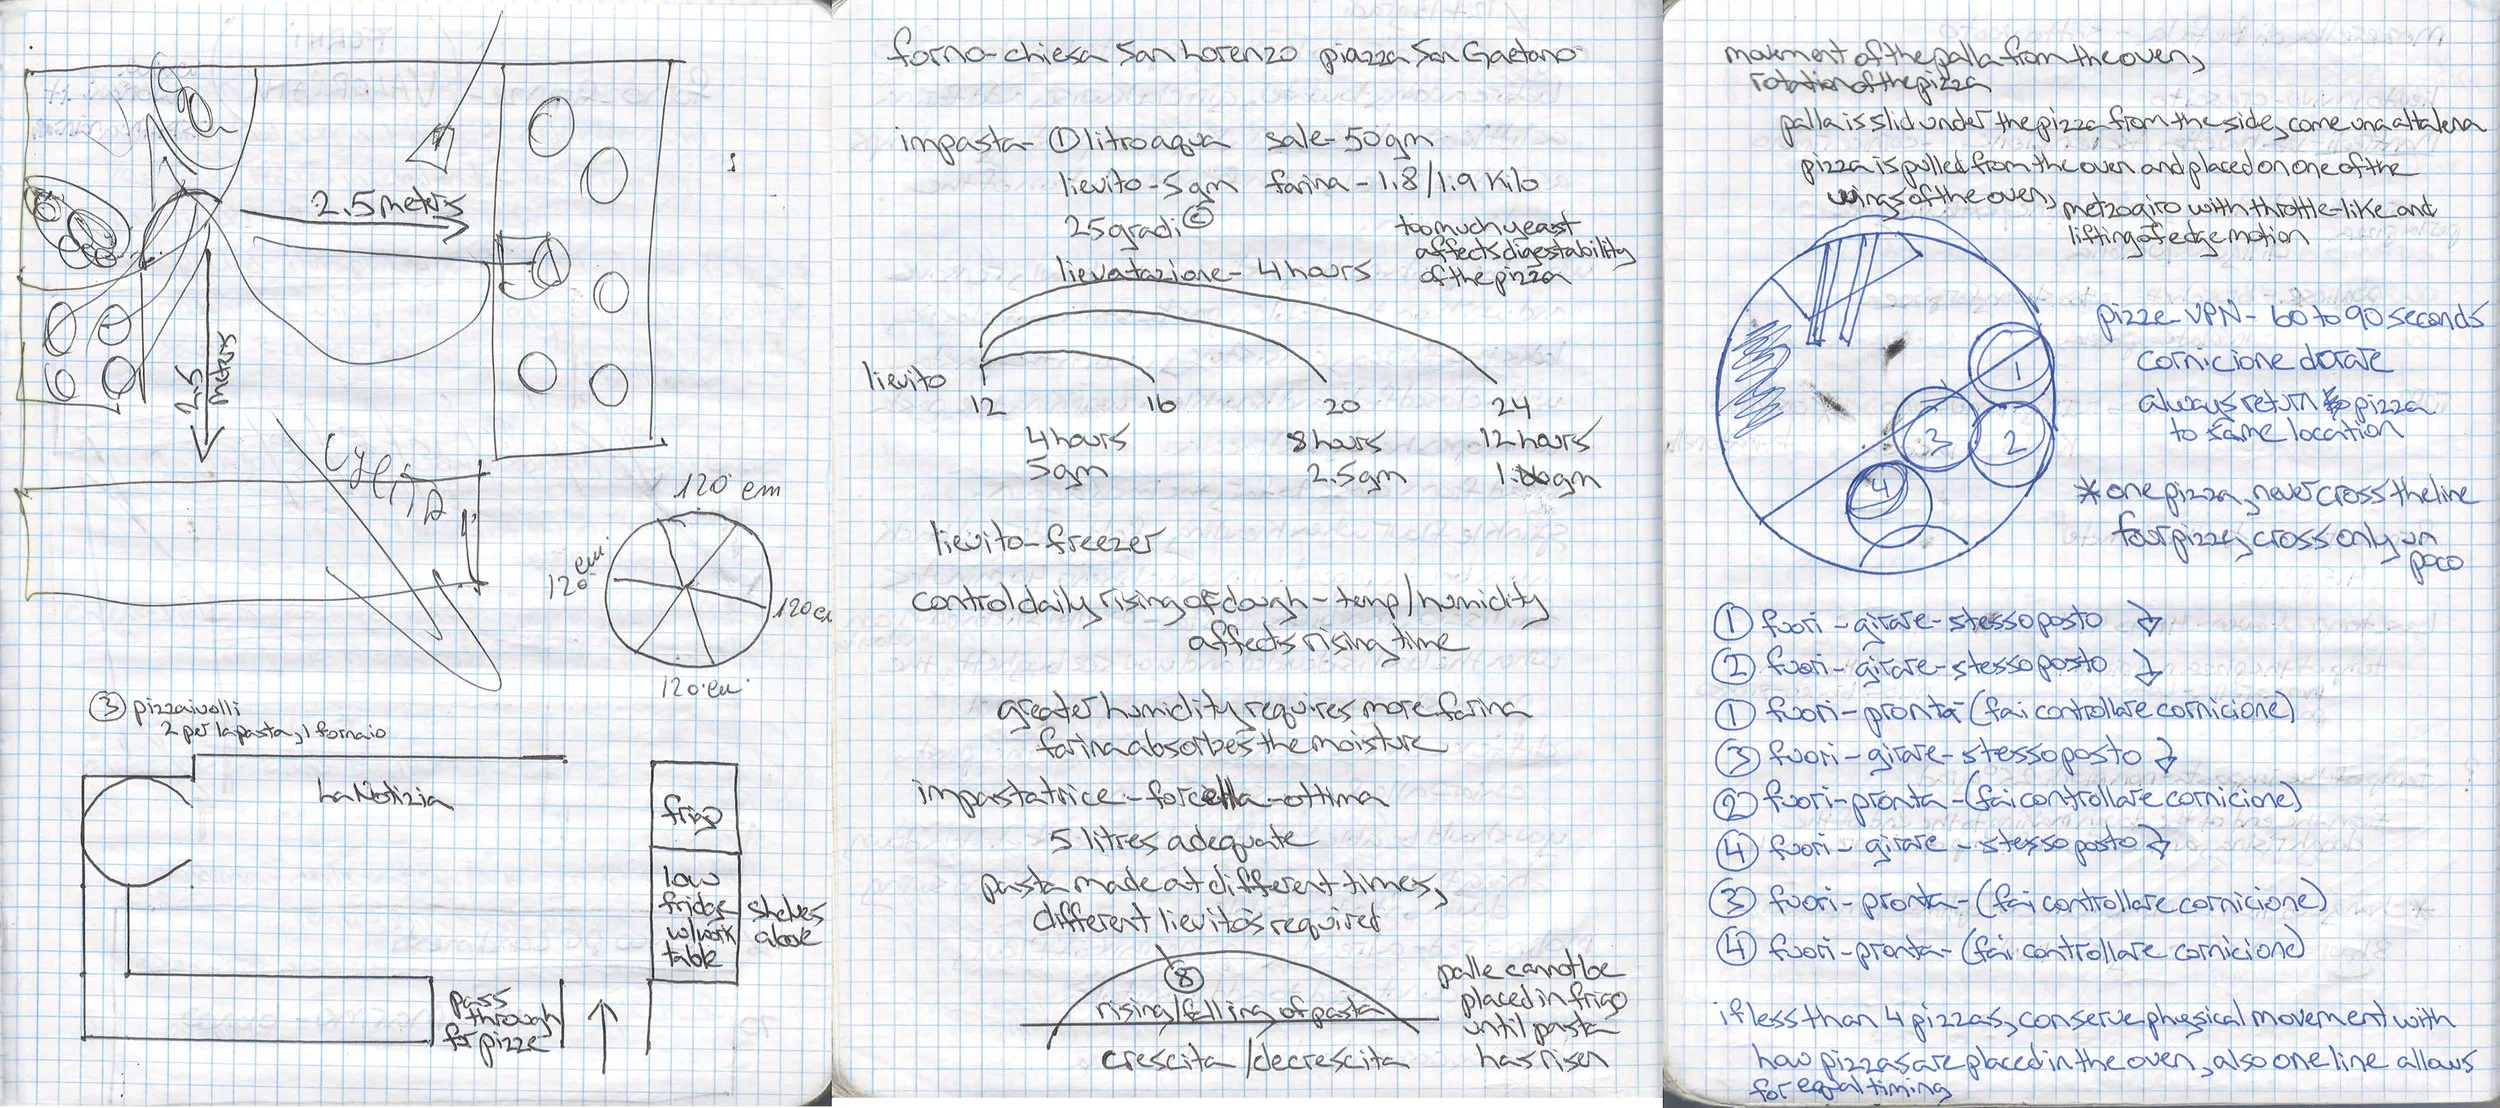 2.5 meters
2.5 meters
120 cm
120 cm
120 cm
120 cm
③ pizzaivolli
2 per la pasta, 1 fornaio
La Notizia
frigo
low
fridge
w/work
table
shelves
above
pass
through
for pizze
forno - chiesa San Lorenzo piazza San Gaetano
impasta - ① litro aqua sale - 50gm
lievito - 5gm farina - 1.8/1.9 Kilo
25 gradi ©
too much yeast
affects digestability
of the pizza
lievatazione - 4 hours
lievito
12 16 20 24
4 hours 8 hours 12 hours
5gm 2.5gm 1. gm
lievito - freezer
control daily rising of dough - temp/humidity
affects rising time
greater humidity requires more farina
farina absorbes the moisture
impastatrice - forcella - ottima
5 litres adequate
pasta made at different times,
different lievito's required
⑧
rising/falling of pasta
crescita/decrescita
palle cannot be
placed in frigo
until pasta
has risen
movement of the palla from the oven,
rotation of the pizza
palla is slid under the pizza from the side, come una altalena
pizza is pulled from the oven and placed on one of the
wings of the oven, metzo giro with throttle-like and
lifting of edge motion
1
2
3
4
pizze VPN - 60 to 90 seconds
cornicione dorare
always return pizza
to same location
* one pizza, never cross the line
four pizze, cross only un
poco
① fuori - girare - stesso posto
② fuori - girare - stesso posto
① fuori - pronta - (fai controllare cornicione)
③ fuori - girare - stesso posto
② fuori - pronta - (fai controllare cornicione)
④ fuori - girare - stesso posto
③ fuori - pronta - (fai controllare cornicione)
④ fuori - pronta - (fai controllare cornicione)
if less than 4 pizzas, conserve physical movement with
how pizzas are placed in the oven, also one line allows
for equal timing